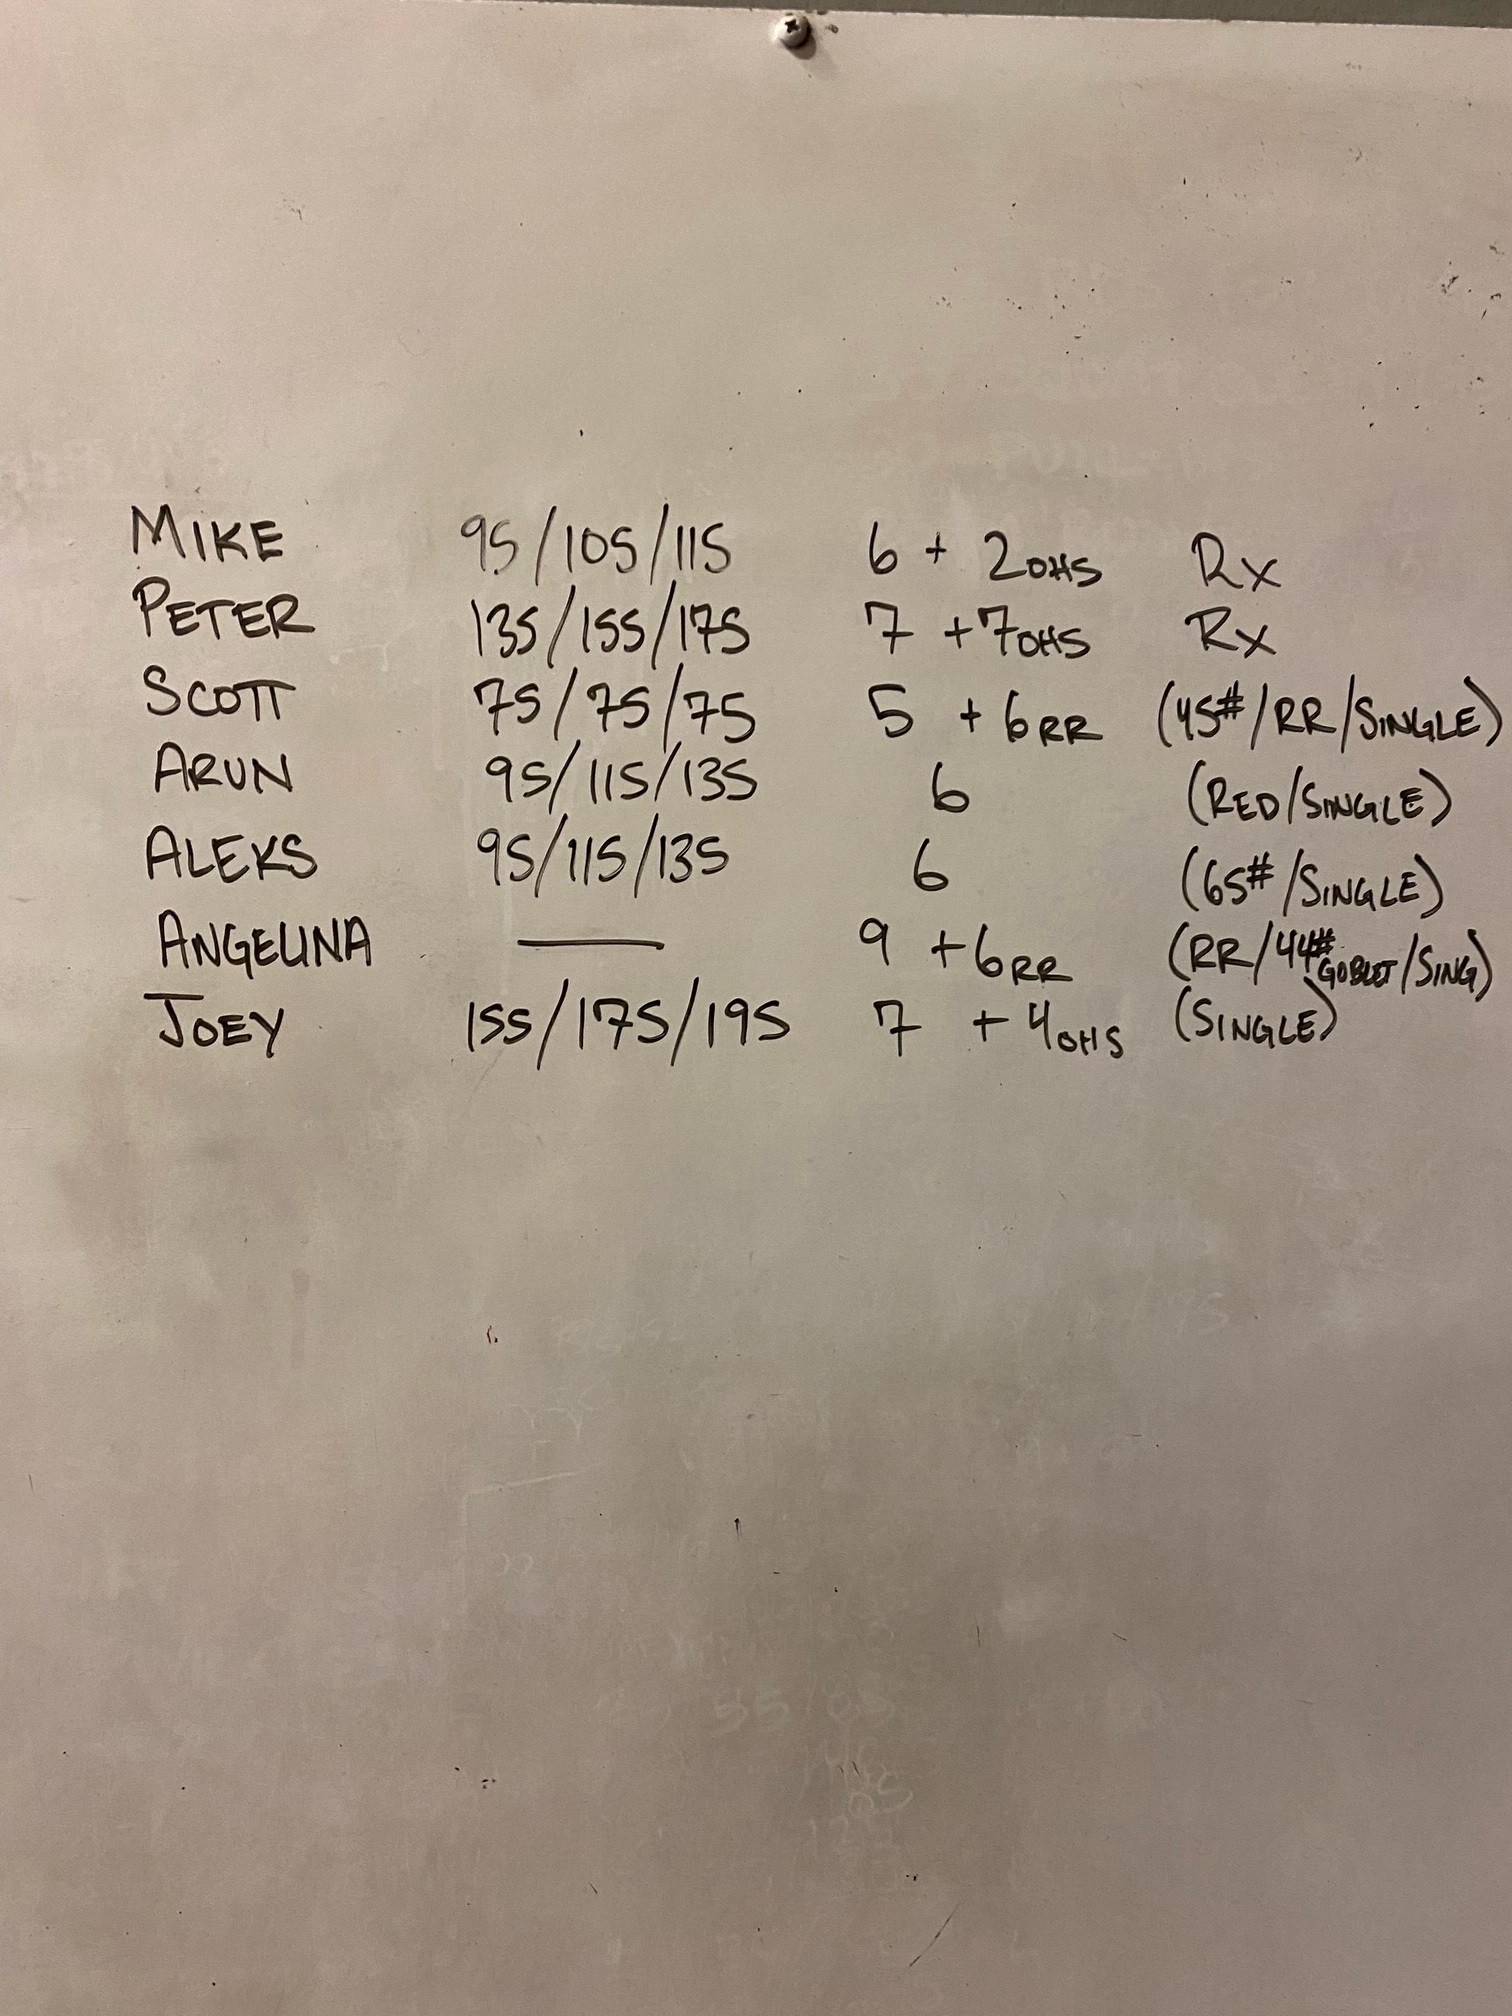 MIKE 95/105/115 6 + 2 OHS Rx
PETER 135/155/175 7 + 7 OHS Rx
SCOTT 75/75/75 5 + 6 RR (45#/RR/SINGLE)
ARUN 95/115/135 6 (RED/SINGLE)
ALEKS 95/115/135 6 (65#/SINGLE)
ANGELINA — 9 + 6 RR (RR/44# GOBLET/SING)
JOEY 155/175/195 7 + 4 OHS (SINGLE)